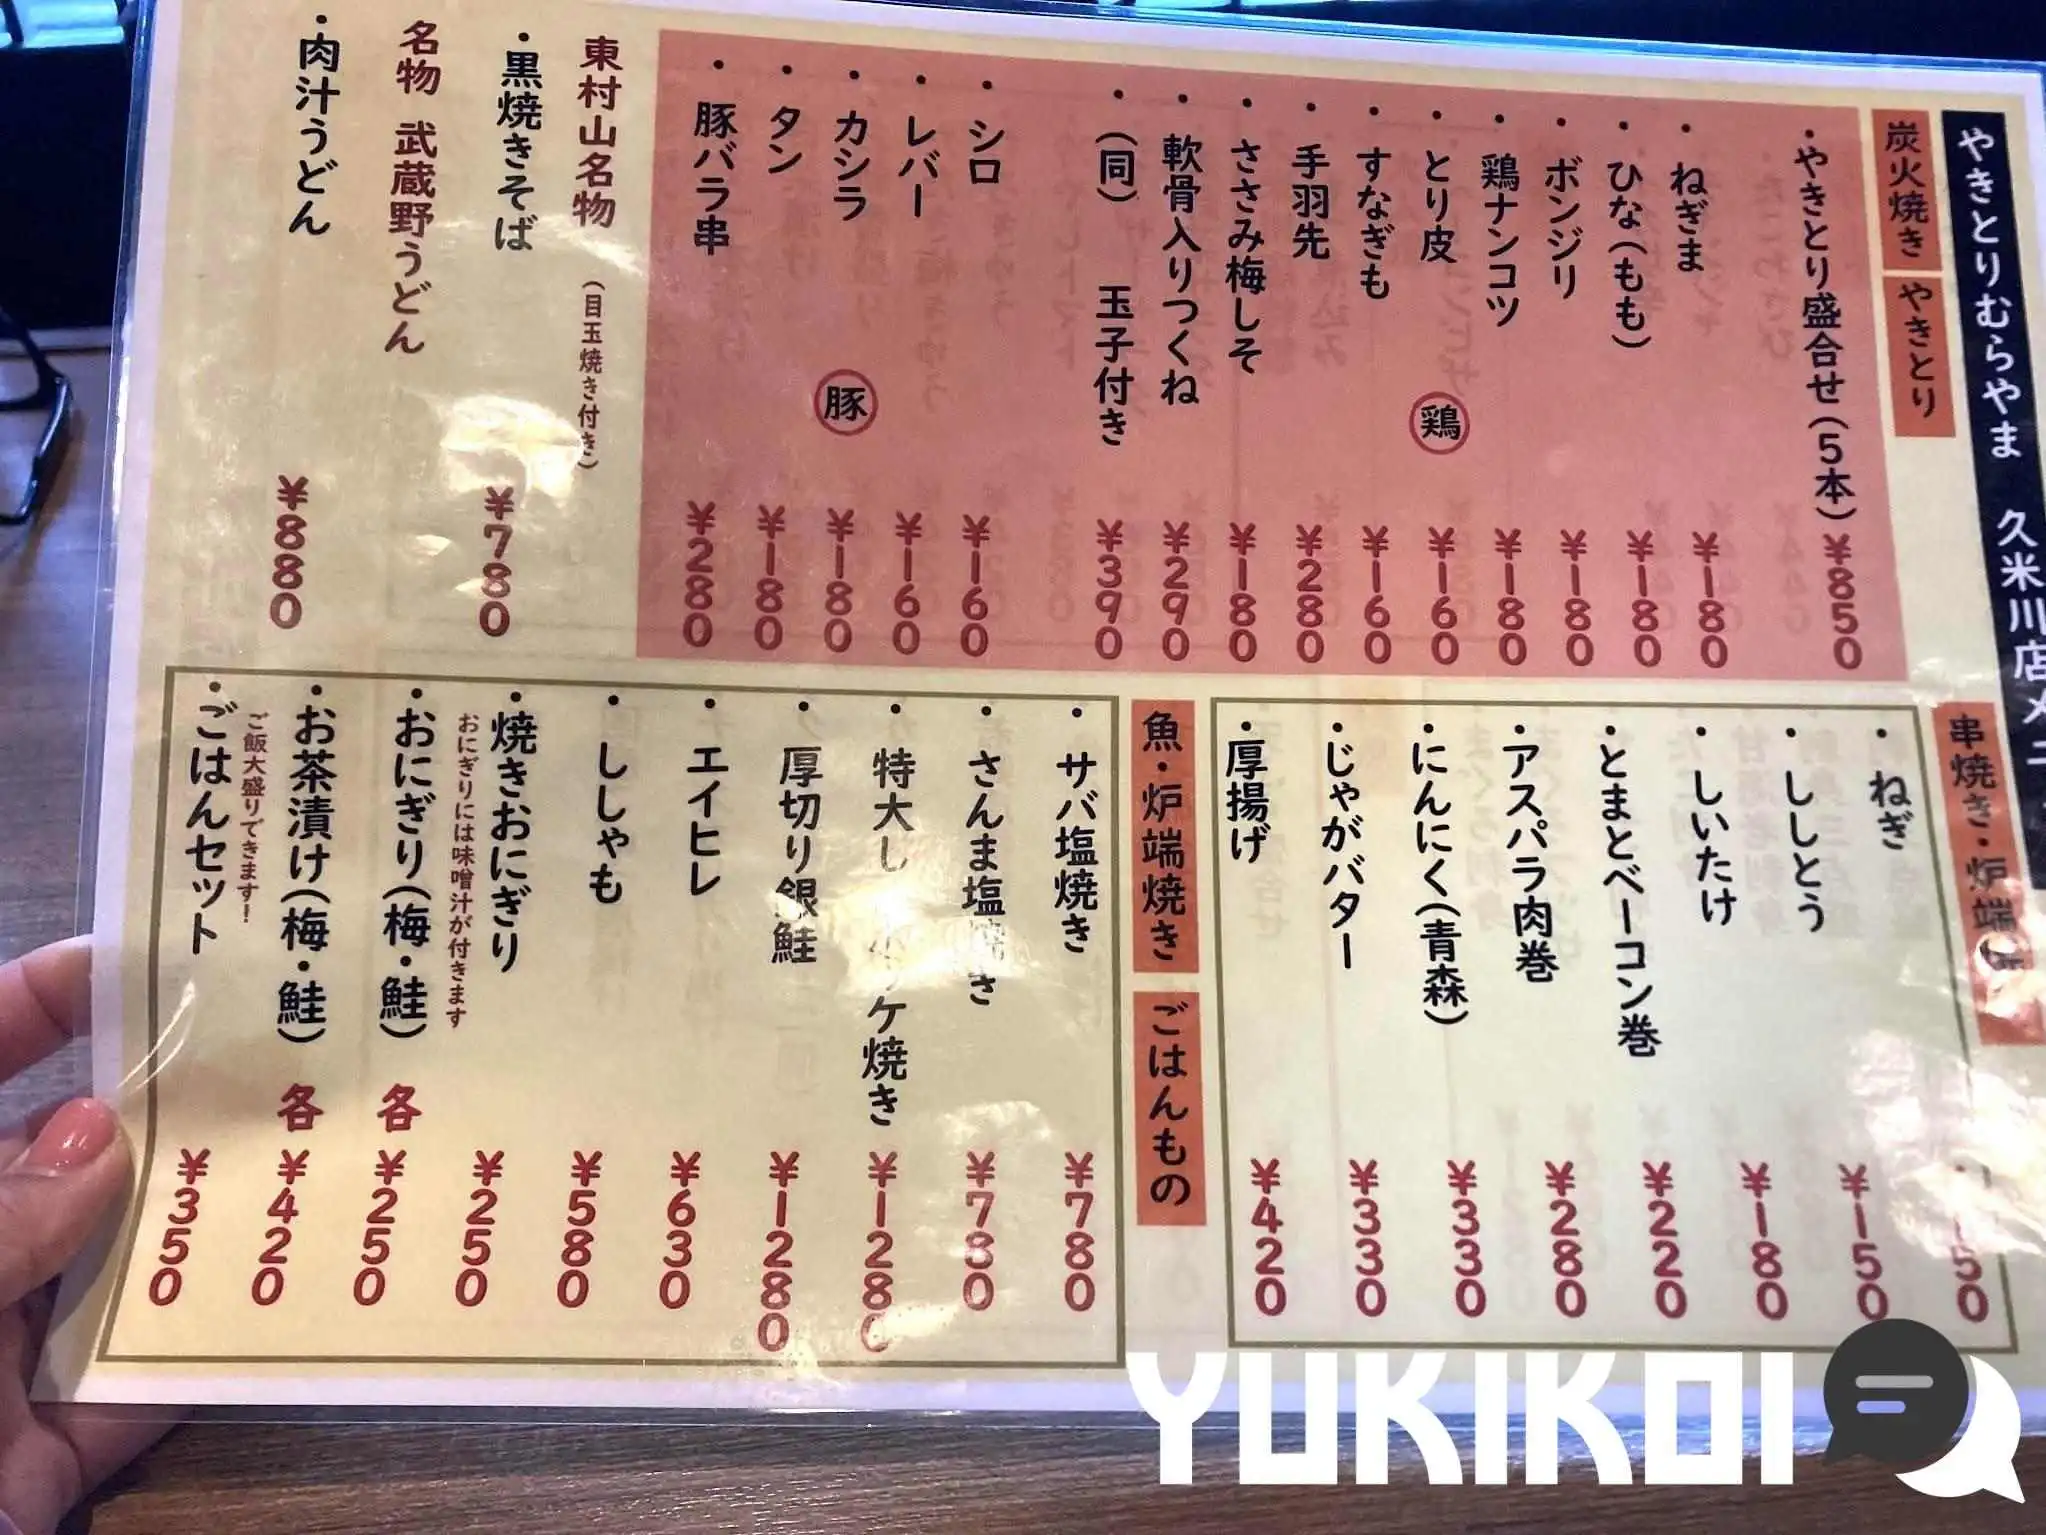 やきとりむらやま 久米川店メニ
炭火焼き やきとり
・やきとり盛合せ(5本) ¥850
・ねぎま ¥180
・ひな(もも) ¥180
・ボンジリ ¥180
・鶏ナンコツ ¥180
・とり皮 ¥160
鶏
・すなぎも ¥160
・手羽先 ¥280
・ささみ梅しそ ¥180
・軟骨入りつくね ¥290
・(同) 玉子付き ¥390
・シロ ¥160
・レバー ¥160
・カシラ ¥180
豚
・タン ¥180
・豚バラ串 ¥280
東村山名物 (目玉焼き付き)
・黒焼きそば ¥780
名物 武蔵野うどん
・肉汁うどん ¥880
串焼き・炉端
・ねぎ
・ししとう ¥150
・しいたけ ¥180
・とまとベーコン巻 ¥220
・アスパラ肉巻 ¥280
・にんにく(青森) ¥330
・じゃがバター ¥330
・厚揚げ ¥420
魚・炉端焼き ごはんもの
・サバ塩焼き ¥780
・さんま塩 ¥780
・特大し ケ焼き
・厚切り銀鮭 ¥1280
・エイヒレ ¥630
・ししゃも ¥580
・焼きおにぎり ¥250
おにぎりには味噌汁が付きます
・おにぎり(梅・鮭) 各 ¥250
・お茶漬け(梅・鮭) 各 ¥420
ご飯大盛りできます!
・ごはんセット ¥350
YUKIKOI